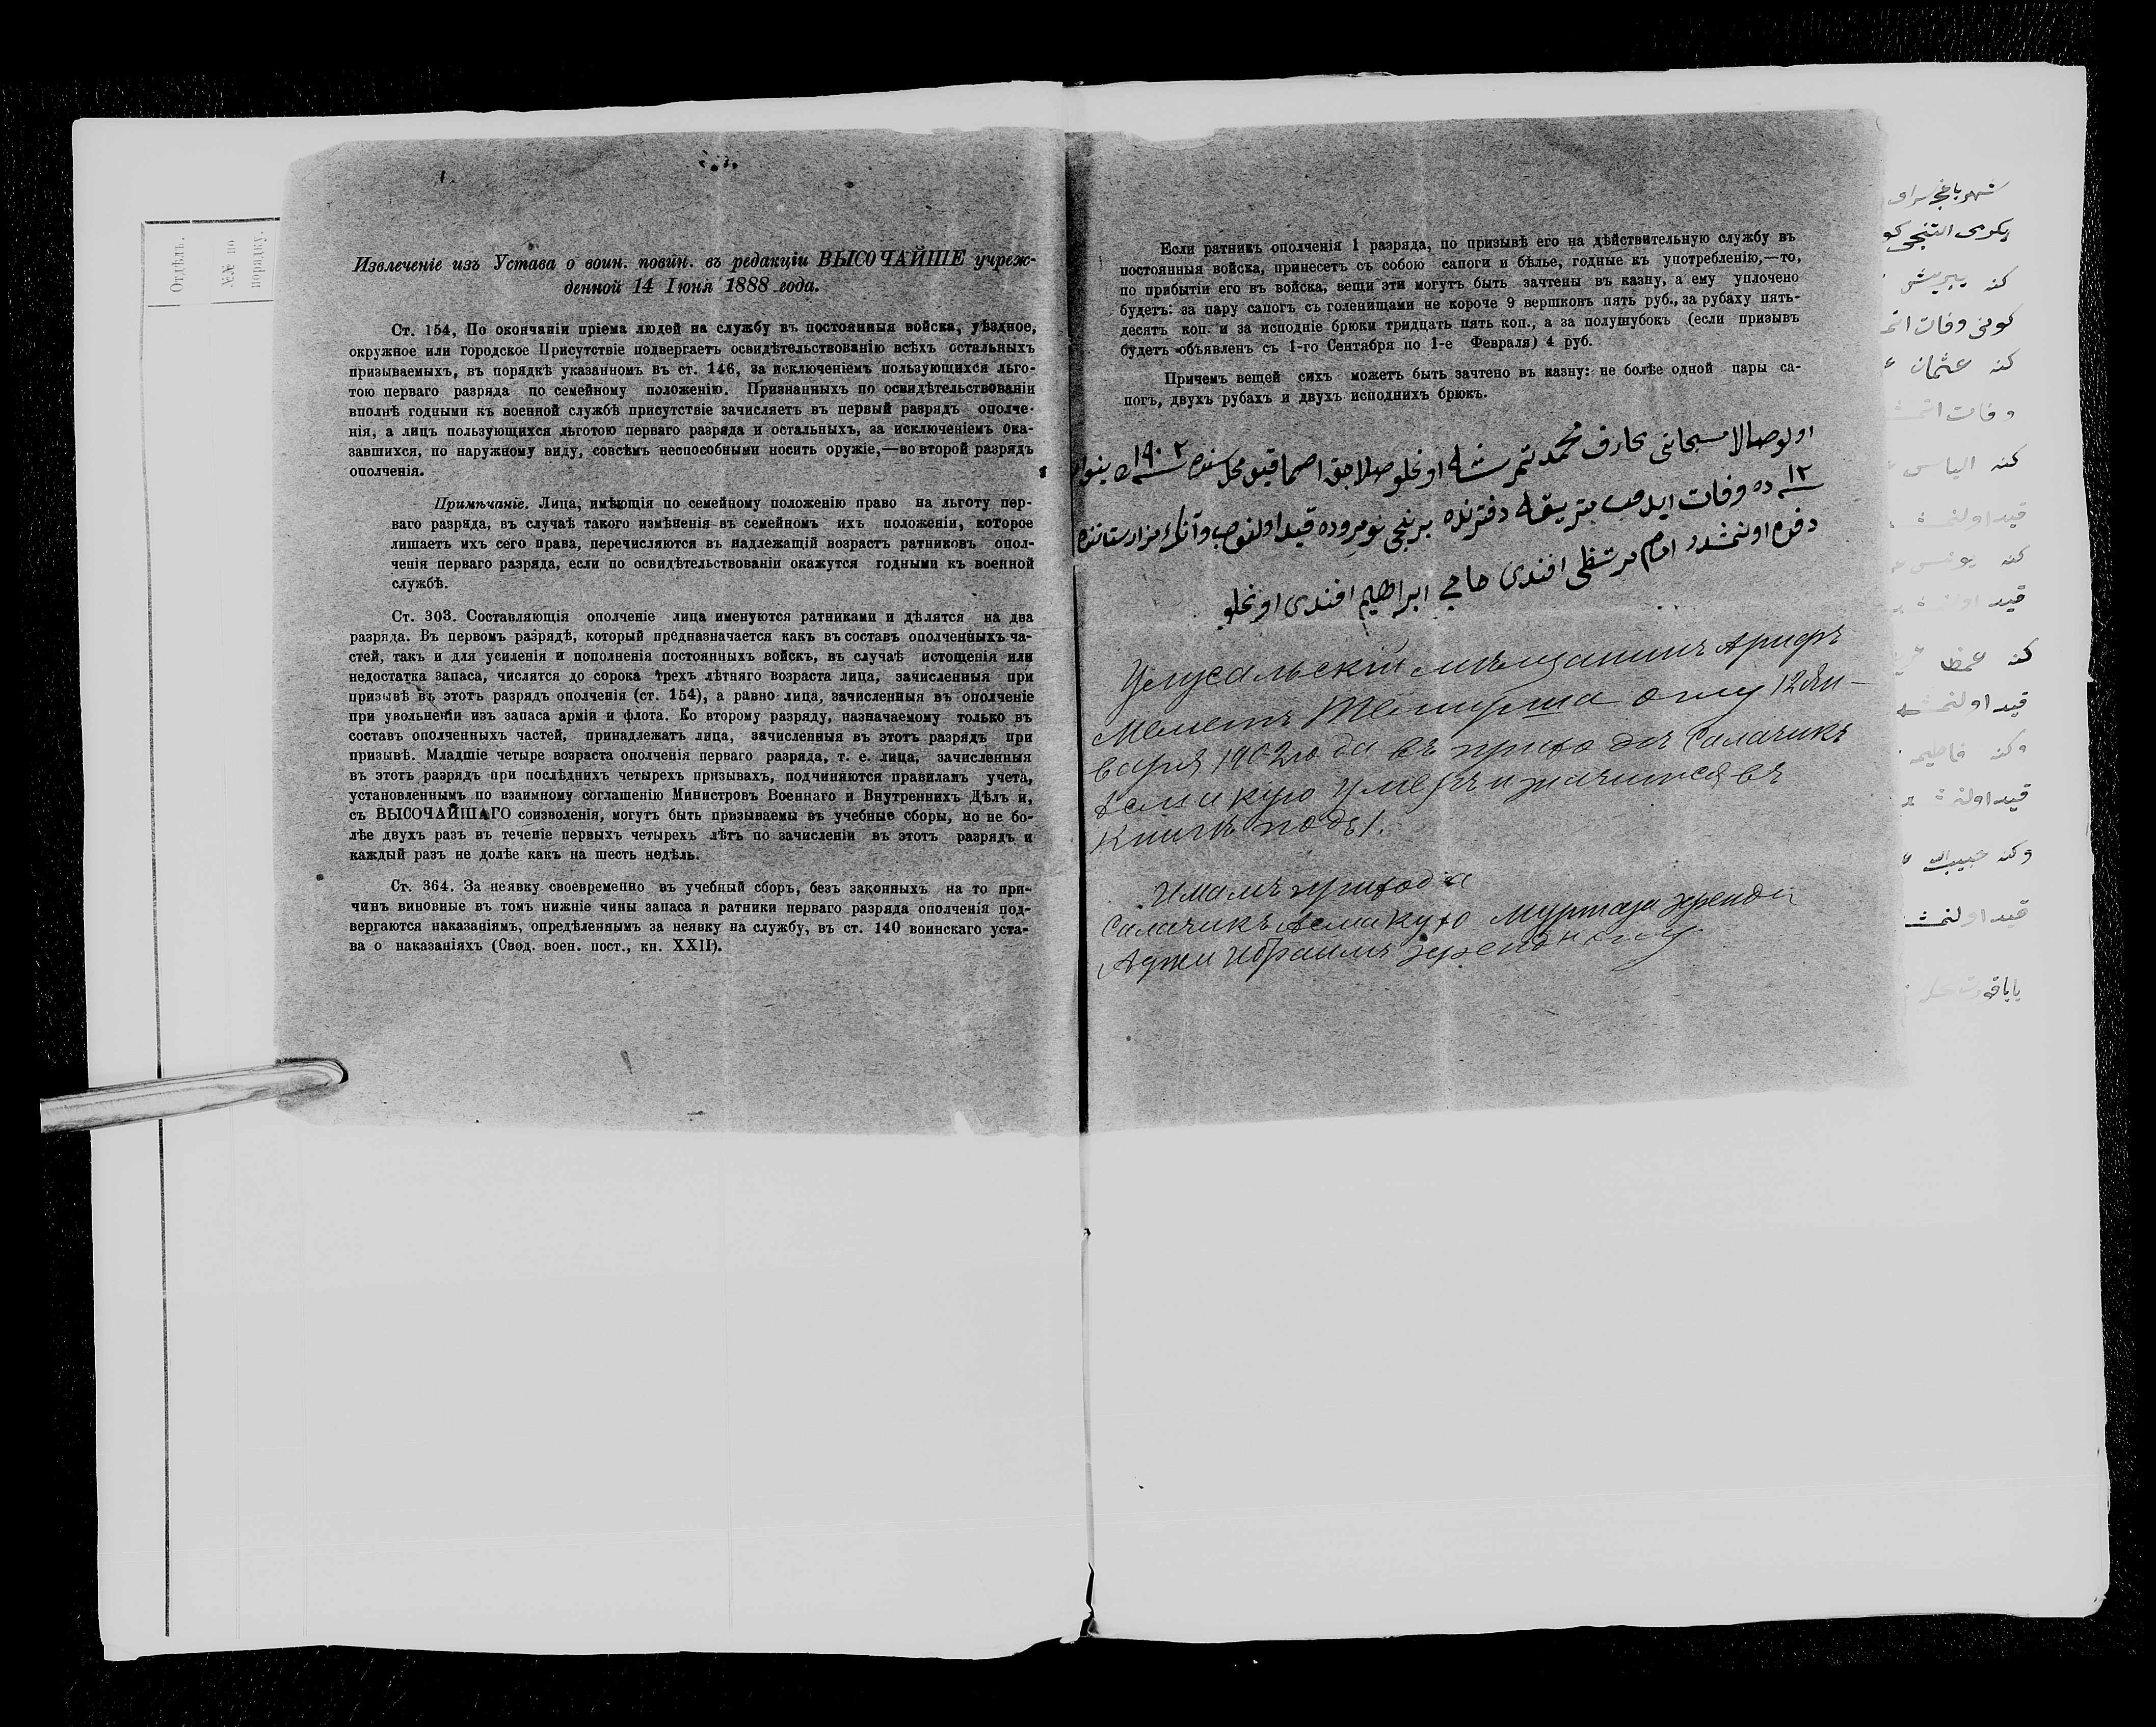 Отдѣлъ.
№№ по
порядку.
Извлеченіе изъ Устава о воин. повин. въ редакціи ВЫСОЧАЙШЕ учреж-
денной 14 Іюня 1888 года.
Ст. 154, По окончаніи пріема людей на службу въ постоянныя войска, уѣздное,
окружное или городское Присутствіе подвергаетъ освидѣтельствованію всѣхъ остальныхъ
призываемыхъ, въ порядкѣ указанномъ въ ст. 146, за исключеніемъ пользующихся льго-
тою перваго разряда по семейному положенію. Признанныхъ по освидѣтельствованіи
вполнѣ годными къ военной службѣ присутствіе зачисляетъ въ первый разрядъ ополче-
нія, а лицъ пользующихся льготою перваго разряда и остальныхъ, за исключеніемъ ока-
завшихся, по наружному виду, совсѣмъ неспособными носить оружіе,—во второй разрядъ
ополченія.
Примѣчаніе. Лица, имѣющія по семейному положенію право на льготу пер-
ваго разряда, въ случаѣ такого измѣненія въ семейномъ ихъ положеніи, которое
лишаетъ ихъ сего права, перечисляются въ надлежащій возрастъ ратниковъ опол-
ченія перваго разряда, если по освидѣтельствованіи окажутся годными къ военной
службѣ.
Ст. 303. Составляющія ополченіе лица именуются ратниками и дѣлятся на два
разряда. Въ первомъ разрядѣ, который предназначается какъ въ составъ ополченныхъ ча-
стей, такъ и для усиленія и пополненія постоянныхъ войскъ, въ случаѣ истощенія или
недостатка запаса, числятся до сорока трехъ лѣтняго возраста лица, зачисленныя при
призывѣ въ этотъ разрядъ ополченія (ст. 154), а равно лица, зачисленныя въ ополченіе
при увольненіи изъ запаса арміи и флота. Ко второму разряду, назначаемому только въ
составъ ополченныхъ частей, принадлежатъ лица, зачисленныя въ этотъ разрядъ при
призывѣ. Младшіе четыре возраста ополченія перваго разряда, т. е. лица, зачисленныя
въ этотъ разрядъ при послѣднихъ четырехъ призывахъ, подчиняются правиламъ учета,
установленнымъ по взаимному соглашенію Министровъ Военнаго и Внутреннихъ Дѣлъ и,
съ ВЫСОЧАЙШАГО соизволенія, могутъ быть призываемы въ учебные сборы, но не бо-
лѣе двухъ разъ въ теченіе первыхъ четырехъ лѣтъ по зачисленіи въ этотъ разрядъ и
каждый разъ не долѣе какъ на шесть недѣль.
Ст. 364. За неявку своевременно въ учебный сборъ, безъ законныхъ на то при-
чинъ виновные въ томъ нижніе чины запаса и ратники перваго разряда ополченія под-
вергаются наказаніямъ, опредѣленнымъ за неявку на службу, въ ст. 140 воинскаго уста-
ва о наказаніяхъ (Свод. воен. пост., кн. XXII).
Если ратникъ ополченія 1 разряда, по призывѣ его на дѣйствительную службу въ
постоянныя войска, принесетъ съ собою сапоги и бѣлье, годные къ употребленію,—то,
по прибытіи его въ войска, вещи эти могутъ быть зачтены въ казну, а ему уплочено
будетъ: за пару сапогъ съ голенищами не короче 9 вершковъ пять руб., за рубаху пять-
десятъ коп. и за исподніе брюки тридцать пять коп., а за полушубокъ (если призывъ
будетъ объявленъ съ 1-го Сентября по 1-е Февраля) 4 руб.
Причемъ вещей сихъ можетъ быть зачтено въ казну: не болѣе одной пары са-
погъ, двухъ рубахъ и двухъ исподнихъ брюкъ.
عارف محمد تمرشاه اوغلو صلاجق اصما قیو محله سنده ١٩٠٢
١٢ ده وفات ایدوب متریقه دفترنده برنجی نومروده قید اولنوب
دفن اولنمشدر امام مرتضی افندی حاجی ابراهیم افندی اوغلو
мѣщанинъ Арифъ
Меметъ Темирша оглу 12 Ян-
варя 1902 года въ приходѣ Салачикъ
Асма кую умеръ и значится въ
книгѣ подъ 1.
Имамъ прихода
Салачикъ Асма кую Муртаза эфенди
Аджи Ибраимъ эфенди оглу
شهر باغچه سرای
کنه
کونی وفات
کنه عثمان
وفات
کنه الیاس
قید اولنمش
کنه یونس
قید
کنه
قید اولنمش
وکنه فاطمه
قید
وکنه حبیب الله
قید اولنمش